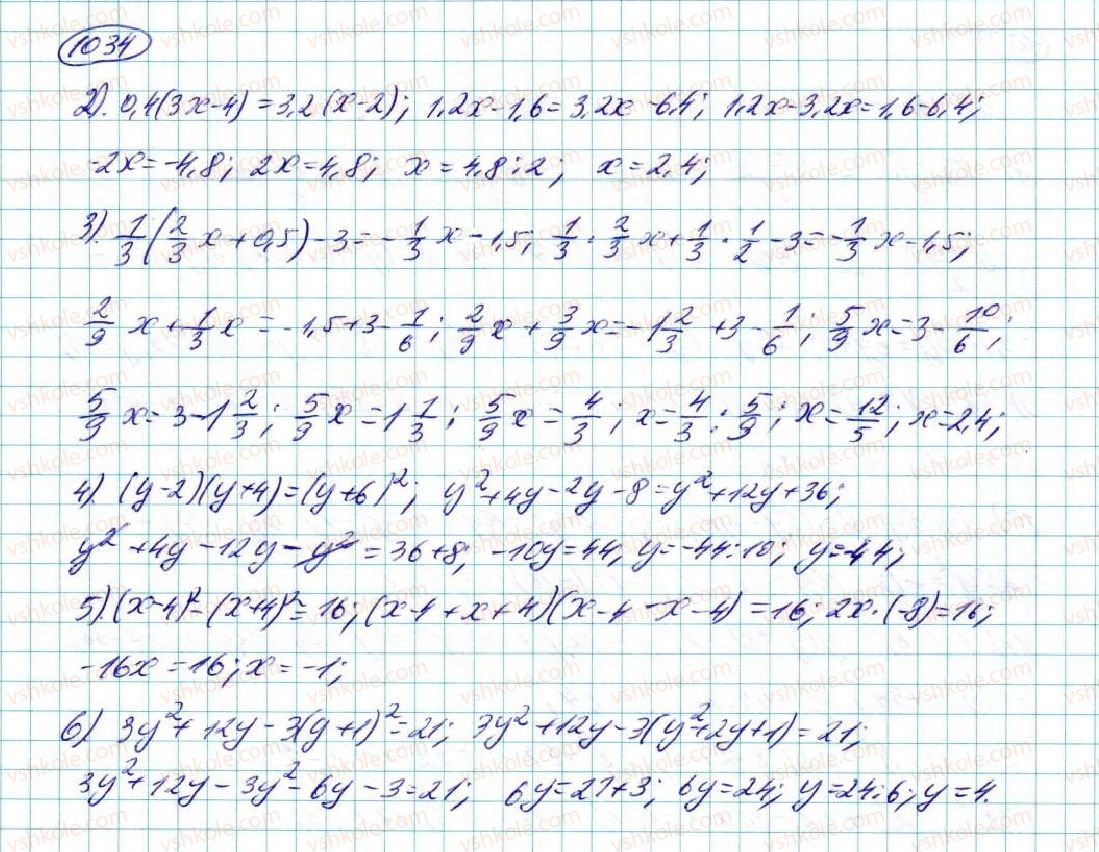 1034
2). 0,4(3x-4) = 3,2(x-2); 1,2x-1,6 = 3,2x-6,4; 1,2x-3,2x = 1,6-6,4;
-2x = -4,8; 2x = 4,8; x = 4,8:2; x = 2,4;
3). 1/3(2/3 x + 0,5) - 3 = -1/3 x - 1,5; 1/3 · 2/3 x + 1/3 · 1/2 - 3 = -1/3 x - 1,5;
2/9 x + 1/3 x = -1,5 + 3 - 1/6; 2/9 x + 3/9 x = -1 2/3 + 3 - 1/6; 5/9 x = 3 - 10/6;
5/9 x = 3 - 1 2/3; 5/9 x = 1 1/3; 5/9 x = 4/3; x = 4/3 : 5/9; x = 12/5; x = 2,4;
4). (y-2)(y+4) = (y+6)²; y²+4y-2y-8 = y²+12y+36;
y²+4y-12y-y² = 36+8; -10y = 44, y = -44:10; y = -4,4;
5). (x-4)² - (x+4)² = 16; (x-4+x+4)(x-4-x-4) = 16; 2x·(-8) = 16;
-16x = 16; x = -1;
6) 3y²+12y-3(y+1)² = 21; 3y²+12y-3(y²+2y+1) = 21;
3y²+12y-3y²-6y-3 = 21; 6y = 21+3; 6y = 24; y = 24:6; y = 4.
vshkole.com